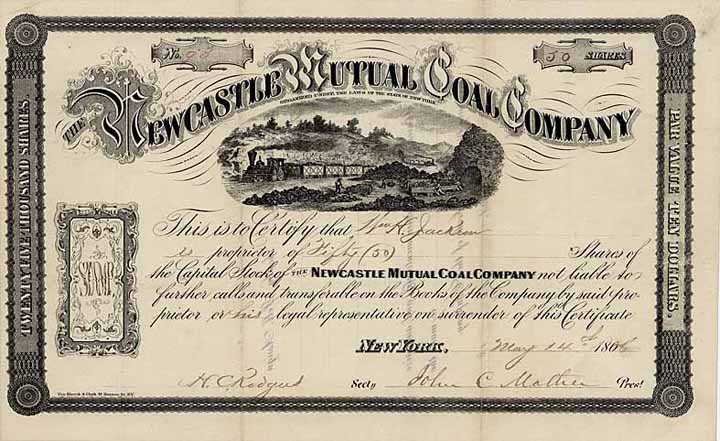 No.
50 SHARES
THE NEWCASTLE MUTUAL COAL COMPANY
ORGANIZED UNDER THE LAWS OF THE STATE OF NEW YORK
TWENTY FIVE THOUSAND SHARES.
PAR VALUE TEN DOLLARS.
STAMP.
This is to Certify that Wm H. Jackson
is proprietor of Fifty (50) Shares of
the Capital Stock of THE NEWCASTLE MUTUAL COAL COMPANY not liable to
further calls and transferable on the Books of the Company by said pro-
prietor or his legal representative on surrender of this Certificate
NEW YORK, May 14th 1866
H. C. Secty John C. Mather Prest